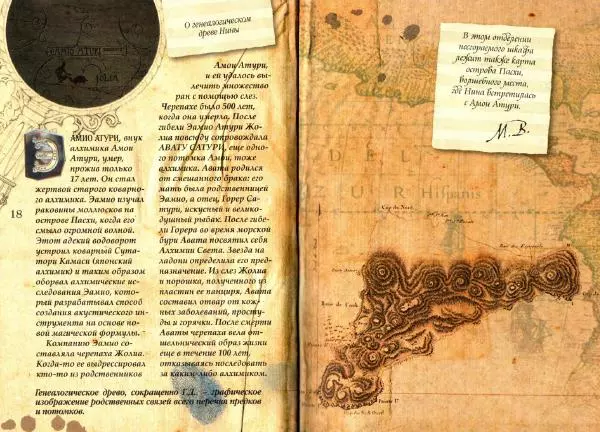 О генеалогическом
древе Нины
ЭАМИО АТУРИ
ЖОЛИА
ЭАМИО АТУРИ, внук
алхимика Амои
Атури, умер,
прожив только
17 лет. Он стал
жертвой старого коварно-
го алхимика. Эамио изучал
раковины моллюсков на
острове Пасхи, когда его
смыло огромной волной.
Этот адский водоворот
устроил коварный Сута-
тори Камаси (японский
алхимик) и таким образом
оборвал алхимические ис-
следования Эамио, кото-
рый разрабатывал способ
создания акустического ин-
струмента на основе но-
вой магической формулы.
Компанию Эамио со-
ставляла черепаха Жолиа.
Когда-то ее выдрессировал
кто-то из родственников
18
Амои Атури,
и ей удалось вы-
лечить множество
ран с помощью слез.
Черепахе было 500 лет,
когда она умерла. После
гибели Эамио Атури Жо-
лиа повсюду сопровождала
АВАТУ САТУРИ, еще одно-
го потомка Амои, тоже
алхимика. Авата родился
от смешанного брака: его
мать была родственницей
Эамио, а отец, Горер Са-
тури, искусный и велико-
душный рыбак. После гибе-
ли Горера во время морской
бури Авата посвятил себя
Алхимии Света. Звезда на
ладони определила его пред-
назначение. Из слез Жолиа
и порошка, полученного из
пластин ее панциря, Авата
составил отвар от кож-
ных заболеваний, просту-
ды и горячки. После смерти
Аваты черепаха вела от-
шельнический образ жизни
еще в течение 100 лет,
отказываясь последовать
за каким-либо алхимиком.
Генеалогическое древо, сокращенно Г.Д. - графическое
изображение родственных связей всего перечня предков
и потомков.
В этом отделении
несгораемого шкафа
лежит также карта
острова Пасхи,
волшебного места,
где Нина встретилась
с Амои Атури.
М. В.
DEL
SUR
Hispanis
Cap du Nord